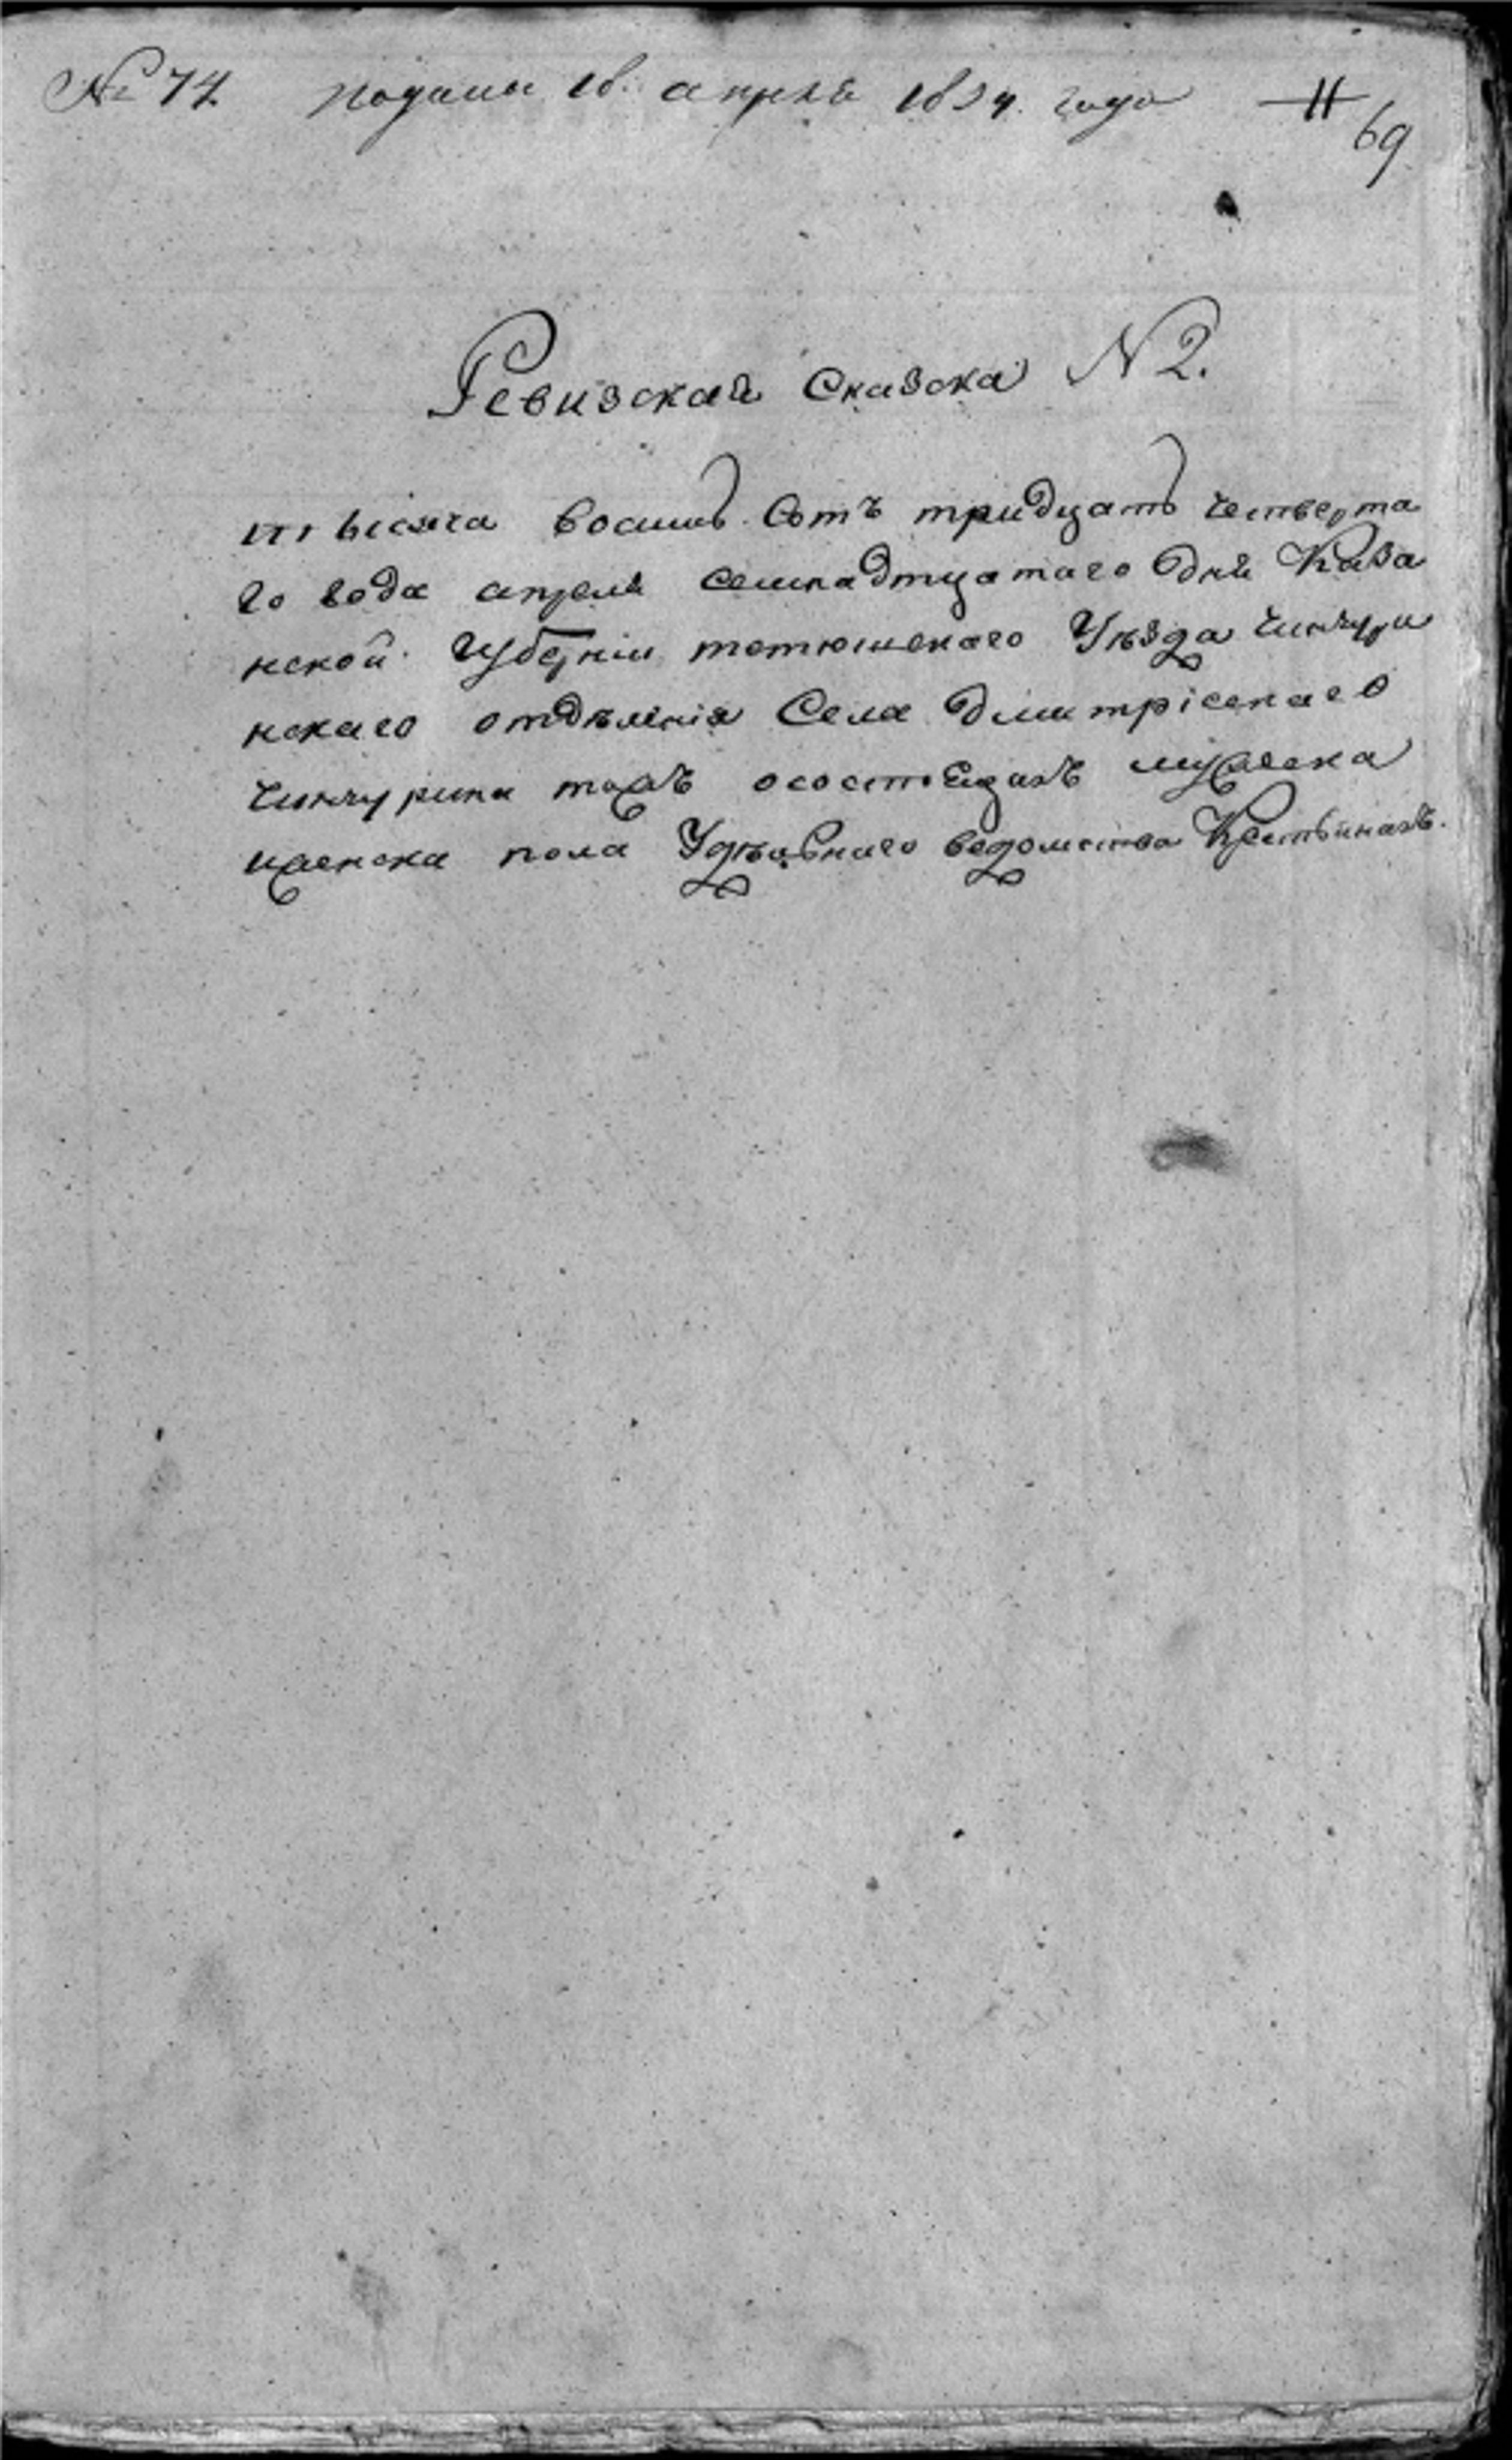 № 74 поданы 18. апреля 1834. года 11
69
Ревизская Сказска N 2.
тысяча восимь Сотъ тридцать четверта
го года апреля семнадтцатаго дня Каза
нской Губерніи тетюшскаго Уѣзда Чинчури
нскаго отдѣленія Села Дмитріевскаго
Чинчурина тожъ осостоящихъ мужеска
иженска пола Удѣльнаго ведомства Крестьянахъ.